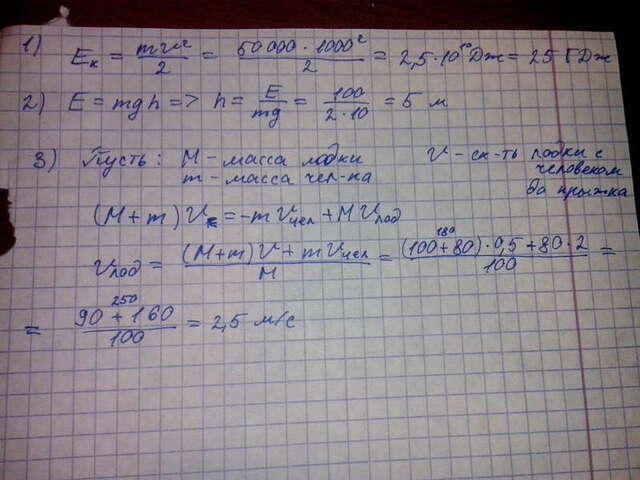 1) Eк = mv²/2 = 50 000 · 1000²/2 = 2,5 · 10¹⁰ Дж = 25 ГДж
2) E = mgh => h = E/mg = 100/2·10 = 5 м
3) Пусть: M - масса лодки
m - масса чел-ка
v - ск-ть лодки с
человеком
до прыжка
(M + m) v = -m vчел + M vлод
vлод = (M+m) v + m vчел/M = (100+80) · 0,5 + 80 · 2/100 =
180
250
= 90 + 160/100 = 2,5 м/с